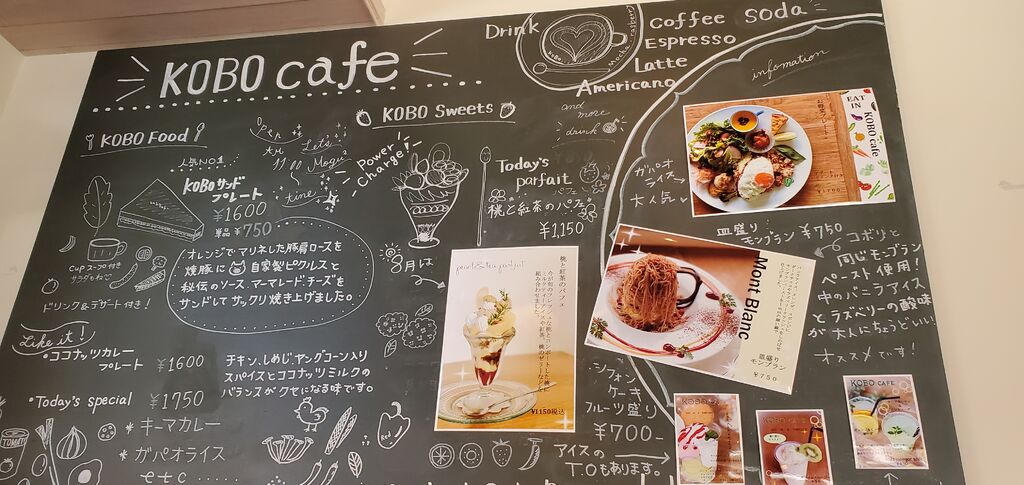 KOBO cafe
KOBO Food
人気No.1
KOBOサンド
プレート
¥1600
単品 ¥750
Cup スープ付き
サラダもね♡
ドリンク&デザート付き!
オレンジでマリネした豚肩ロースを
焼豚に 自家製ピクルスと
秘伝のソース、マーマレード、チーズを
サンドしてサックリ焼き上げました。
Let's
time
Like it!
・ココナッツカレー
プレート ¥1600
チキン、しめじ、ヤングコーン入り
スパイスとココナッツミルクの
バランスがクセになる味です。
・Today's special ¥1750
* キーマカレー
* ガパオライス
etc……
KOBO Sweets
Power
Charge!
Today's
parfait
桃と紅茶のパフェ
¥1,150
8月は
peach&tea parfait
桃と紅茶のパフェ
¥1150税込
シフォン
ケーキ
フルーツ盛り
¥700-
アイスの
T.Oもあります。
Drink
Coffee Soda
Espresso
Latte
Americano
and
more
drink
infomation
EAT
IN
KOBO cafe
ガパオ
ライス
大人気
皿盛り
モンブラン ¥750
Mont Blanc
皿盛り
モンブラン
¥750
コボリと
同じモンブラン
ペースト使用!
中のバニラアイス
とラズベリーの酸味
が大人にちょうどいい
オススメです!
KOBO CAFE